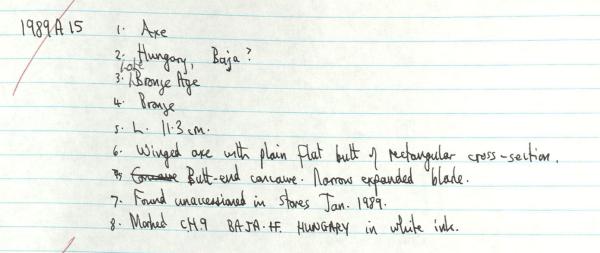 1989A15 1. Axe
2. Hungary, Baja?
3. Late Bronze Age
4. Bronze
5. L. 11.3 cm.
6. Winged axe with plain flat butt of rectangular cross-section.
Butt-end concave. Narrow expanded blade.
7. Found unaccessioned in stores Jan. 1989.
8. Marked C.H.9 BAJA. HUNGARY in white ink.